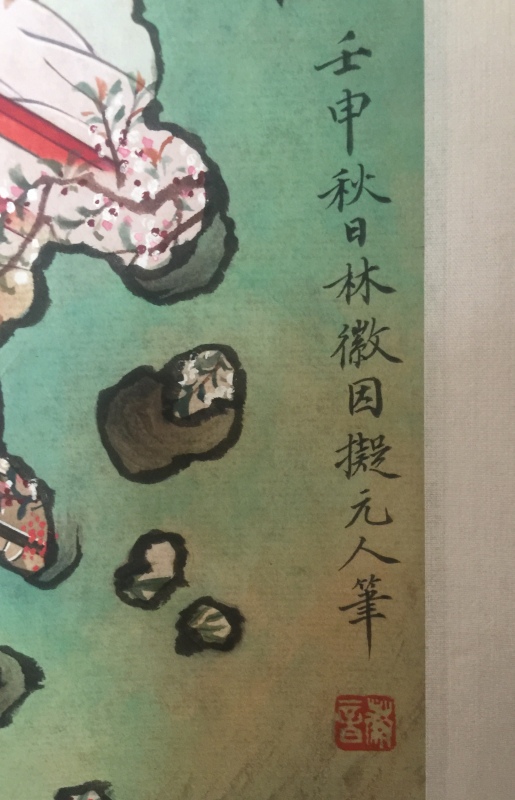 壬申秋日林徽因擬元人筆
徽音